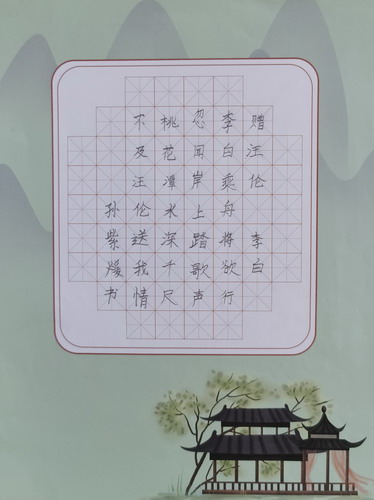 赠汪伦 李白
李白乘舟将欲行
忽闻岸上踏歌声
桃花潭水深千尺
不及汪伦送我情
孙紫书